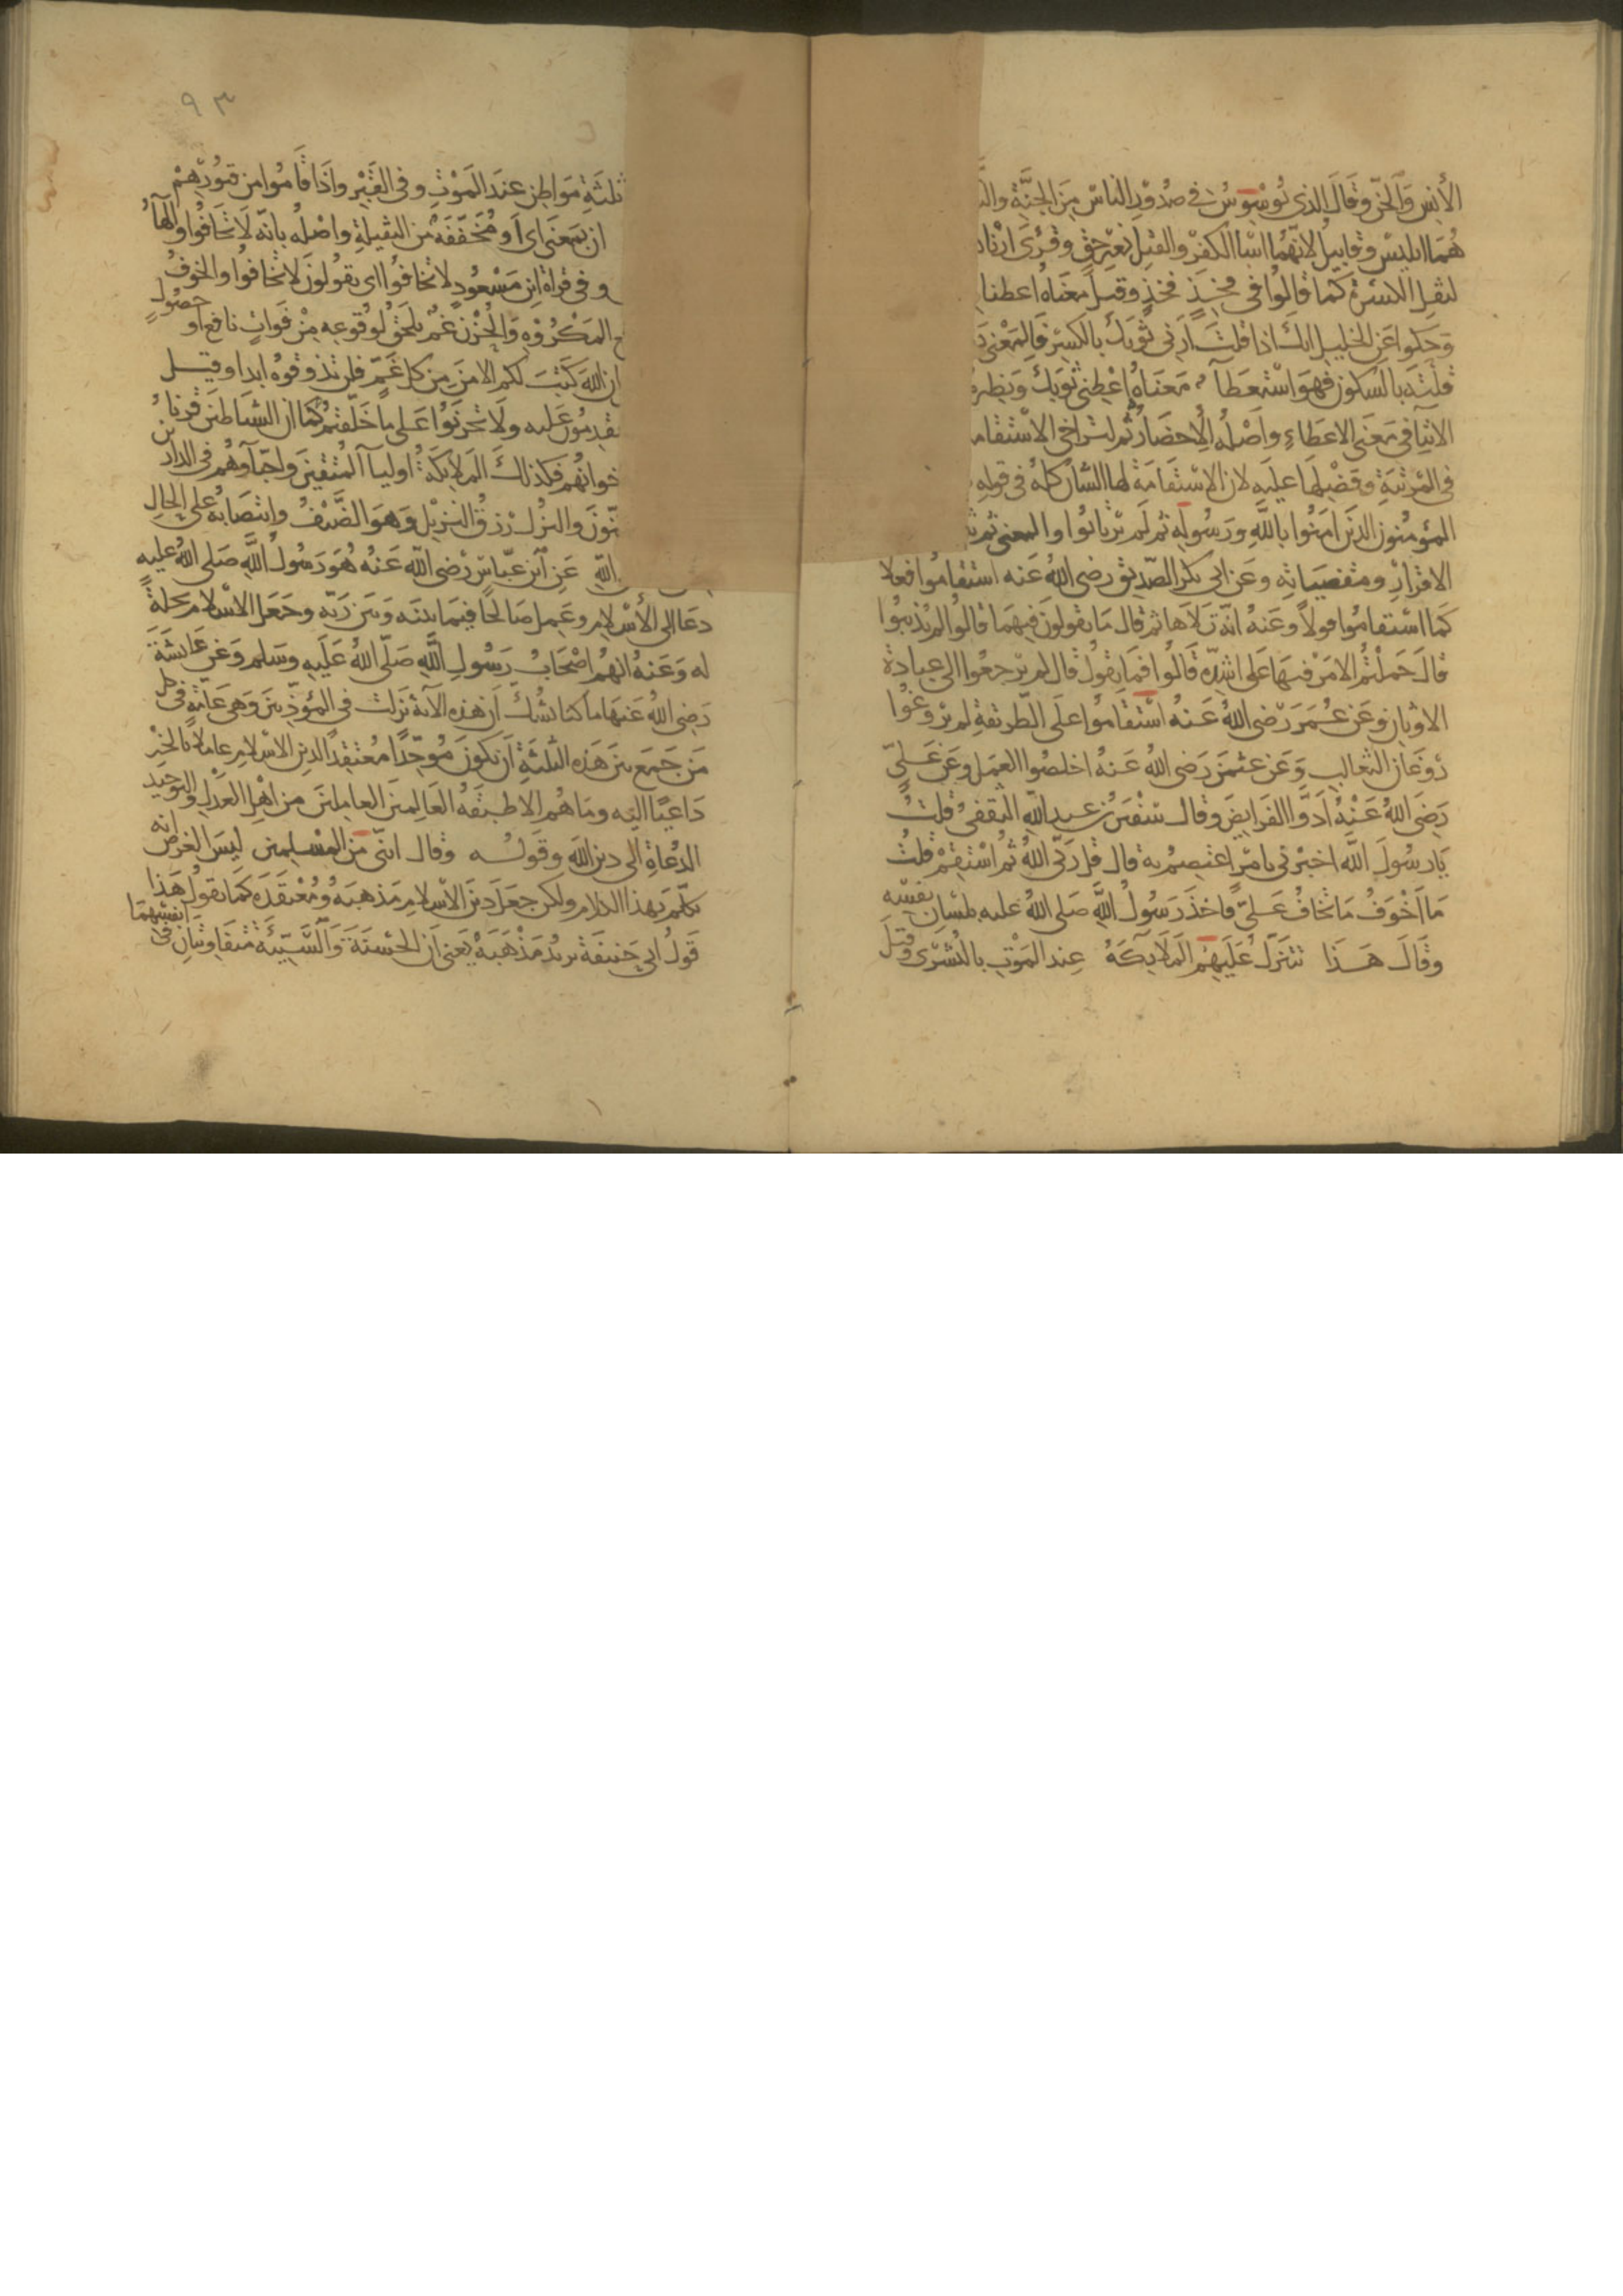 الأنس والجن وقال الذي يوسوس في صدور الناس من الجنة
هما ابليس وقابيل لانهما اسنا الكفر والقتل بغير حق وقرئ ارنا
لثقل الكسرة كما قالوا في فخِذ فخذ وقيل معناه اعطنا
وحكوا عن الخليل انك اذا قلت أرني ثوبك بالكسر فالمعنى
قلته بالسكون فهو استعطاء معناه اعطني ثوبك ونظيره
الايتاء في معنى الاعطاء واصله الاحضار ثم لتراخي الاستقامة
في المرتبة وفضلها عليه لان الاستقامة لها الشان كله في قوله
المؤمنون الذين امنوا بالله ورسوله ثم لم يرتابوا والمعنى ثم
الاقرار ومقتضياته وعن ابي بكر الصديق رضي الله عنه استقاموا فعلا
كما استقاموا قولا وعنه انه تلاها ثم قال ما تقولون فيهما قالوا لم يذنبوا
قال حملتم الامر فيها على اشده قالوا فما تقول قال لم يرجعوا الى عبادة
الاوثان وعن عمر رضي الله عنه استقاموا على الطريقة لم يروغوا
روغان الثعالب وعن عثمن رضي الله عنه اخلصوا العمل وعن علي
رضي الله عنه أدوا الفرايض وقال سفين بن عبد الله الثقفي قلت
يا رسول الله اخبرني بامر اعتصم به قال قل ربي الله ثم استقم قلت
ما اخوف ما تخاف علي فاخذ رسول الله صلى الله عليه بلسان نفسه
وقال هذا تتنزل عليهم الملايكة عند الموت بالبشرى وقيل
٩٣
ثلثة مواطن عند الموت وفي القبر واذا قاموا من قبورهم
ان بمعنى اي او مخففة من الثقيلة واصله بانه لا تخافوا والهاء
وفي قراة ابن مسعود لا تخافوا اي يقولون لا تخافوا والخوف
المكروه والحزن غم يلحق لوقوعه من فوات نافع او حصول
ان الله كتب لكم الامن من كل غم فلن تذوقوه ابدا وقيل
تقدمون عليه ولا تحزنوا على ما خلفتم كما ان الشياطين قرناء
خوانهم فكذلك الملايكة اوليا المتقين واحباوهم في الدارين
نون والنزل رزق النزيل وهو الضيف وانتصابه على الحال
الله عن ابن عباس رضي الله عنه هو رسول الله صلى الله عليه
دعا الى الاسلام وعمل صالحا فيما بينه وبين ربه وجعل الاسلام نحلة
له وعنه انهم اصحاب رسول الله صلى الله عليه وسلم وعن عايشة
رضي الله عنها ما كنا نشك ان هذه الآية نزلت في المؤذنين وهي عامة في كل
من جمع بين هذه الثلثة ان يكون موحدا معتقدا لدين الاسلام عاملا بالخير
داعيا اليه وما هم الا طبقة العالمين العاملين من اهل العدل والتوحيد
الدعاة الى دين الله وقوله وقال انني من المسلمين ليس الغرض انه
تكلم بهذا الكلام ولكن جعل دين الاسلام مذهبه ومعتقده كما تقول هذا
قول ابي حنيفة تريد مذهبه يعني ان الحسنة والسيئة متفاوتتان في انفسهما